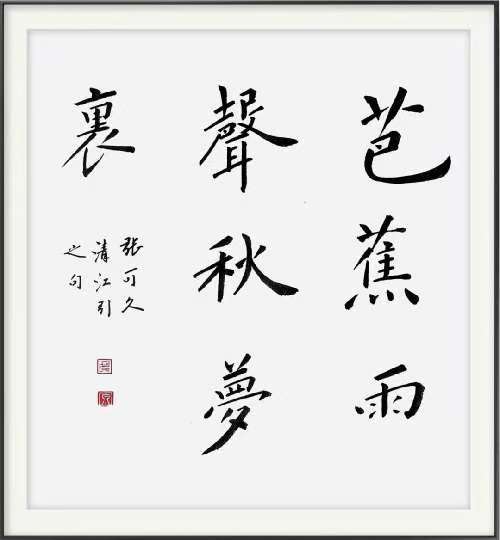 芭蕉雨
聲秋夢
裏
張可久
清江引
之句